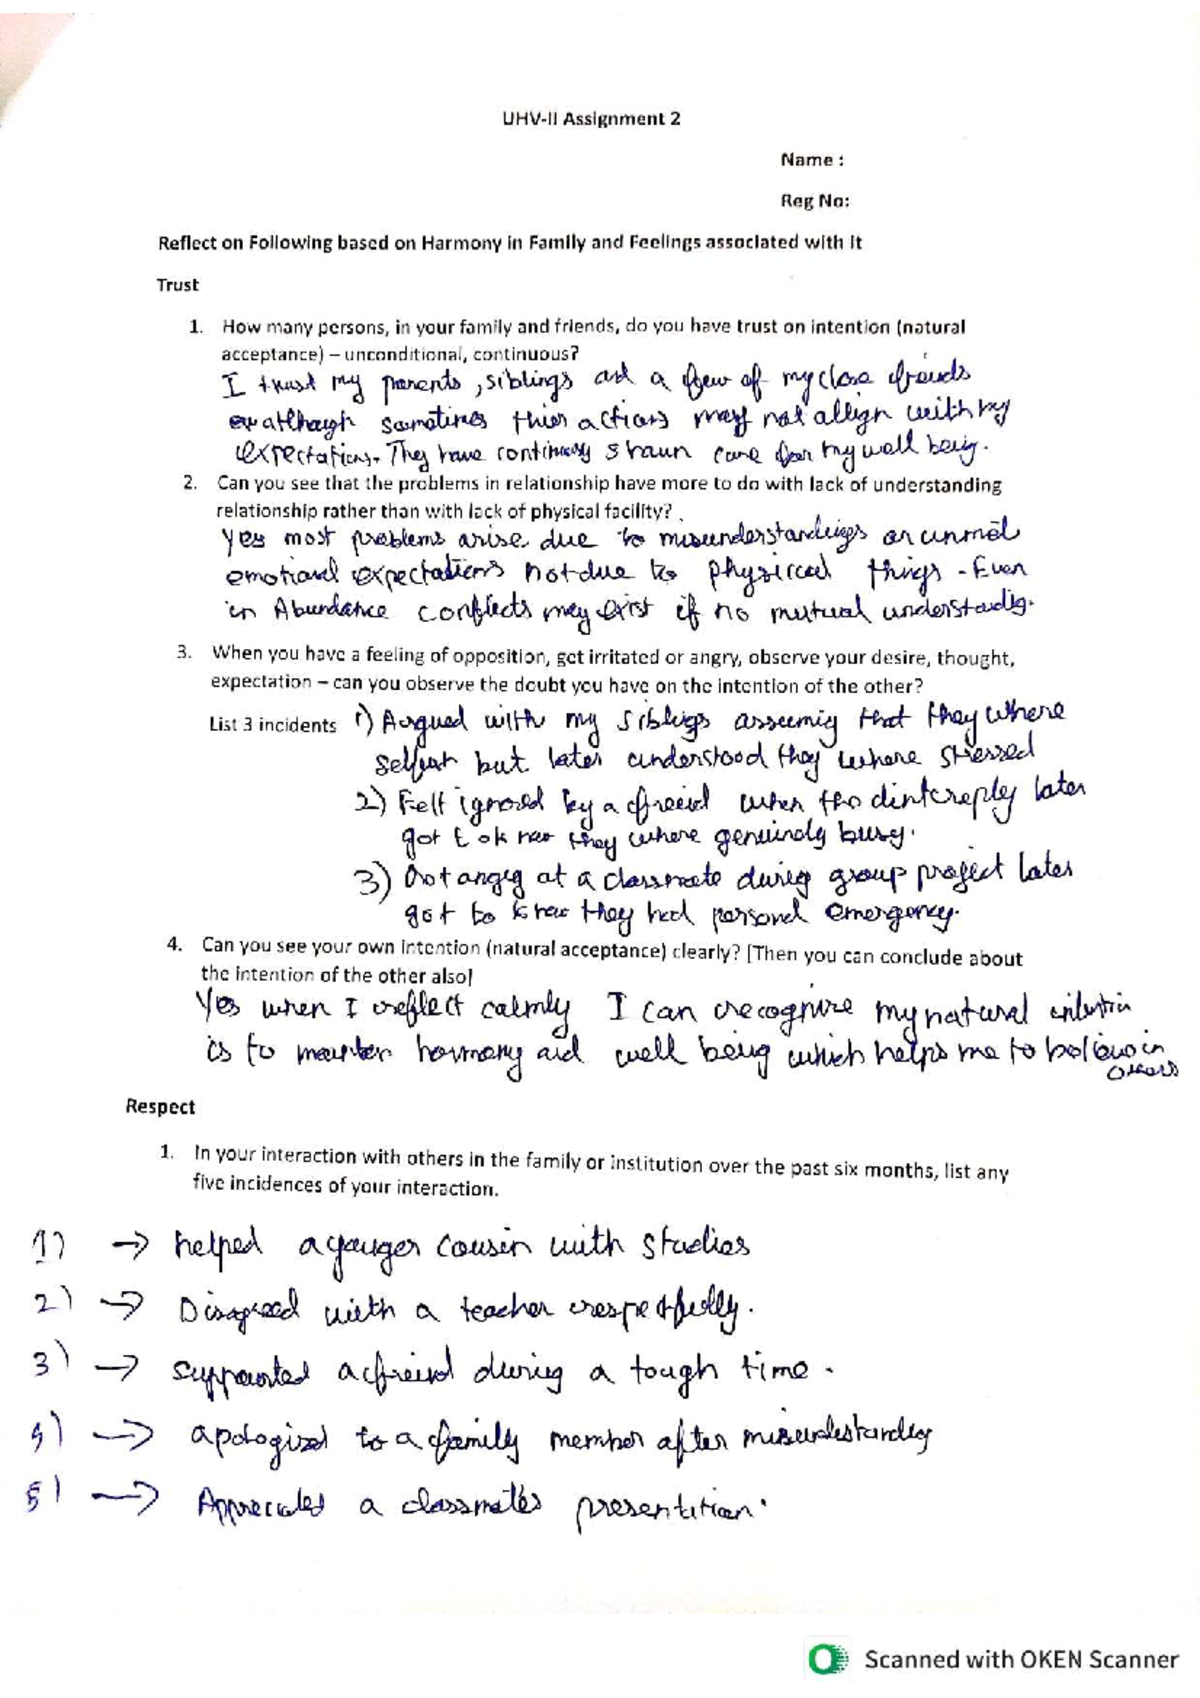 UHV-II Assignment 2
Name :
Reg No:
Reflect on Following based on Harmony in Family and Feelings associated with it
Trust
1. How many persons, in your family and friends, do you have trust on intention (natural
acceptance) – unconditional, continuous?
I trust my parents, siblings and a few of my close friends
although sometimes thier actions may not allign with my
expectations. They have continuosy shown care for my well being.
2. Can you see that the problems in relationship have more to do with lack of understanding
relationship rather than with lack of physical facility?
Yes most problems arise due to misunderstandings or unmet
emotional expectations not due to physical things - Even
in Abundance conflicts may exist if no mutual understandig.
3. When you have a feeling of opposition, get irritated or angry, observe your desire, thought,
expectation – can you observe the doubt you have on the intention of the other?
List 3 incidents 1) Argued with my siblings assuming that they where
selfish but later understood they where stressed
2) Felt ignored by a freind when tho dint reply later
got to know they where genuinely busy.
3) Got angry at a classmate during group project later
got to know they had personal emergency.
4. Can you see your own intention (natural acceptance) clearly? [Then you can conclude about
the intention of the other also]
Yes when I reflect calmly I can recognize my natural intention
is to mainten harmony and well being which helps me to in
others
Respect
1. In your interaction with others in the family or institution over the past six months, list any
five incidences of your interaction.
1) → helped a younger cousin with studies
2) → Disagreed with a teacher respectfully.
3) → supported a freind during a tough time.
4) → apologized to a family member after misunderstanding
5) → Appreciated a classmates presentition.
Scanned with OKEN Scanner